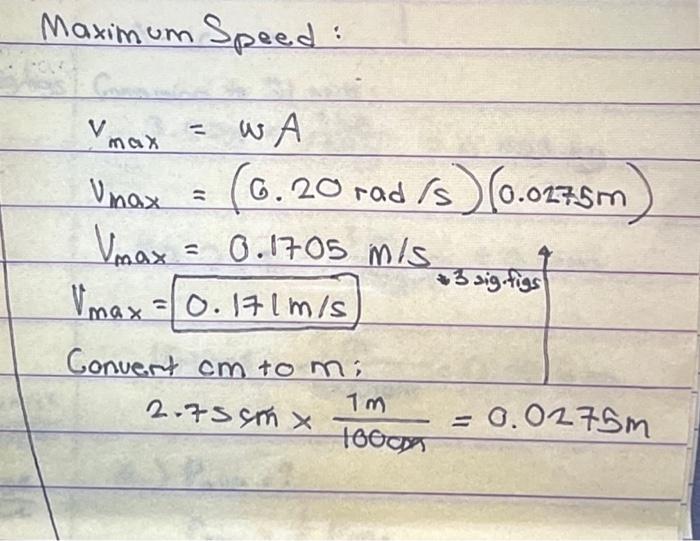 Maximum Speed:
Vmax = ωA
Vmax = (6.20 rad/s)(0.0275m)
Vmax = 0.1705 m/s
*3 sig.figs
Vmax = 0.171m/s
Convert cm to m:
2.75cm × 1m/100cm = 0.0275m